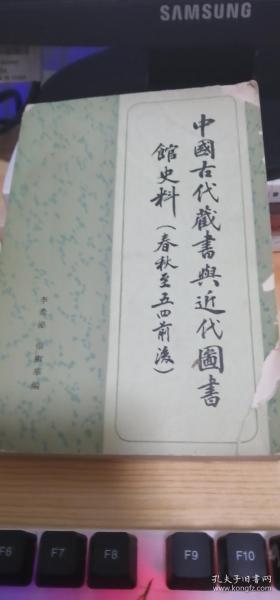 SAMSUNG
中國古代藏書與近代圖書
館史料（春秋至五四前後）
李希泌 張椒華編
F6
F7
F8
F9
F10
孔夫子旧书网